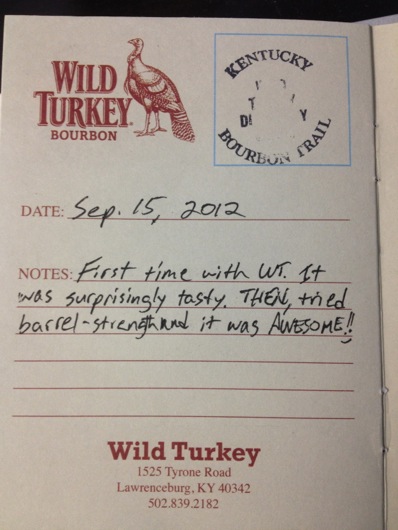 WILD
TURKEY®
BOURBON
KENTUCKY
BOURBON TRAIL
DATE: Sep. 15, 2012
NOTES: First time with WT. It
was surprisingly tasty. THEN, tried
barrel-strength and it was AWESOME!!
Wild Turkey
1525 Tyrone Road
Lawrenceburg, KY 40342
502.839.2182